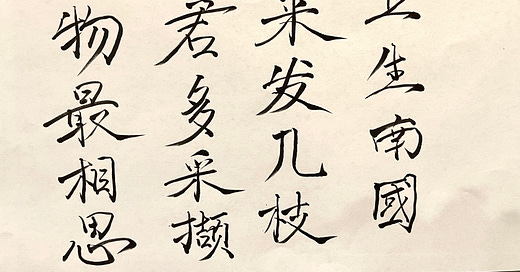 生南國
来发几枝
君多采撷
物最相思